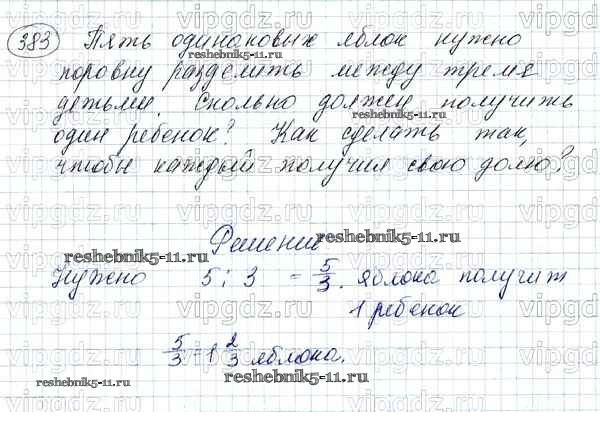 383 Пять одинаковых яблок нужно
поровну разделить между тремя
детьми. Сколько должен получить
один ребенок? Как сделать так,
чтобы каждый получил свою долю?
Решение
Нужно 5 : 3 = 5/3 яблока получит
1 ребенок
5/3 = 1 2/3 яблока.
vipgdz.ru
reshebnik5-11.ru